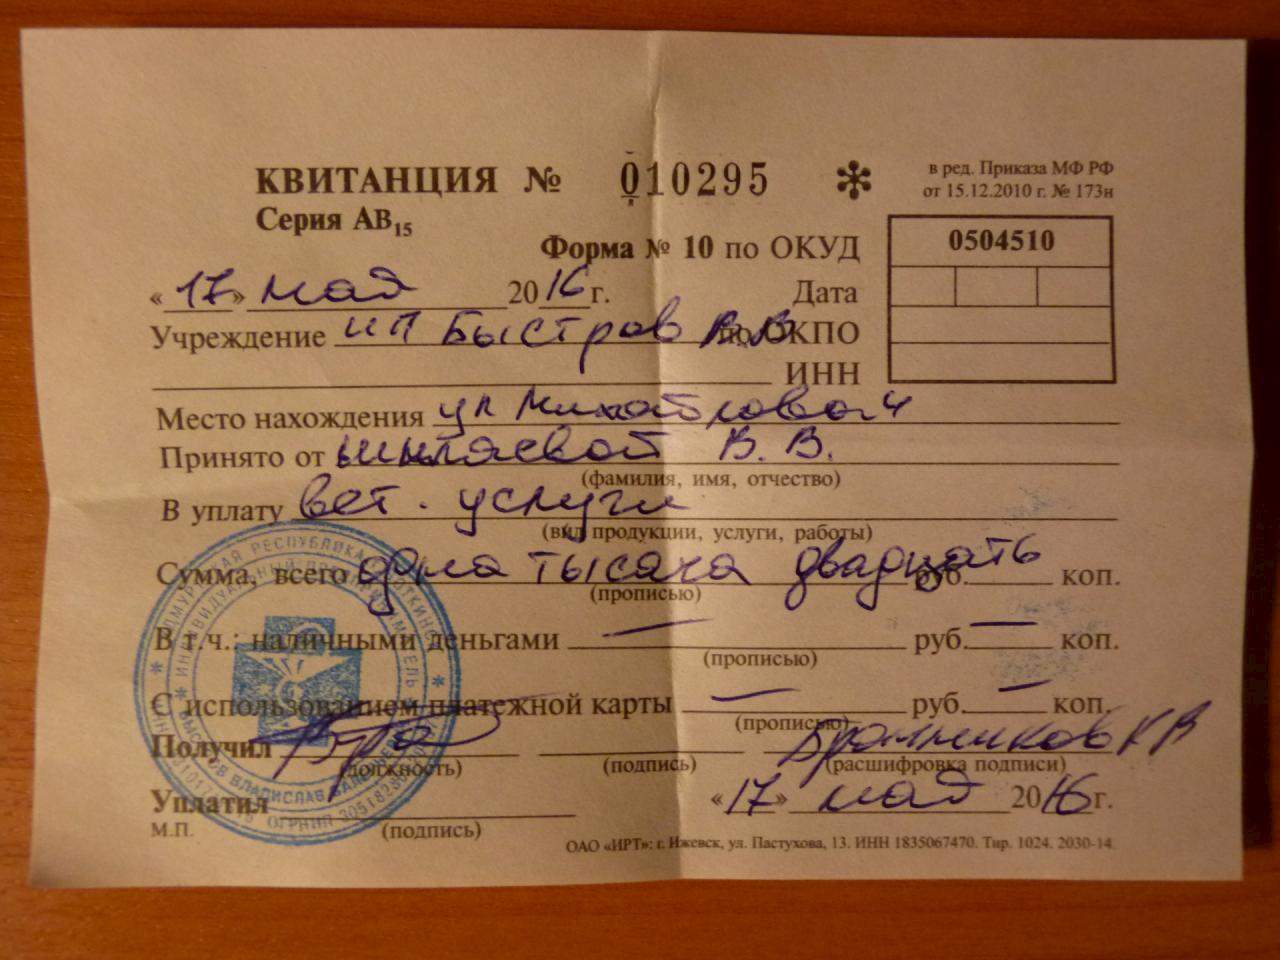 КВИТАНЦИЯ № 010295 *
в ред. Приказа МФ РФ
от 15.12.2010 г. № 173н
Серия АВ15
Форма № 10 по ОКУД 0504510
«17» мая 2016 г. Дата
Учреждение ИП Быстров В.В по ОКПО
ИНН
Место нахождения ул
Принято от Шиляевой В. В.
(фамилия, имя, отчество)
В уплату вет. услуги
(вид продукции, услуги, работы)
Сумма, всего одна тысяча двадцать руб. коп.
(прописью)
В т.ч.: наличными деньгами — руб. — коп.
(прописью)
С использованием платежной карты — руб. — коп.
(прописью)
Получил Бранников К В
(должность) (подпись) (расшифровка подписи)
Уплатил «17» мая 2016 г.
М.П. (подпись)
ОАО «ИРТ»: г. Ижевск, ул. Пастухова, 13. ИНН 1835067470. Тир. 1024. 2030-14.
УДМУРТСКАЯ РЕСПУБЛИКА
ИНДИВИДУАЛЬНЫЙ ПРЕДПРИНИМАТЕЛЬ
БЫСТРОВ ВЛАДИСЛАВ
ОГРНИП